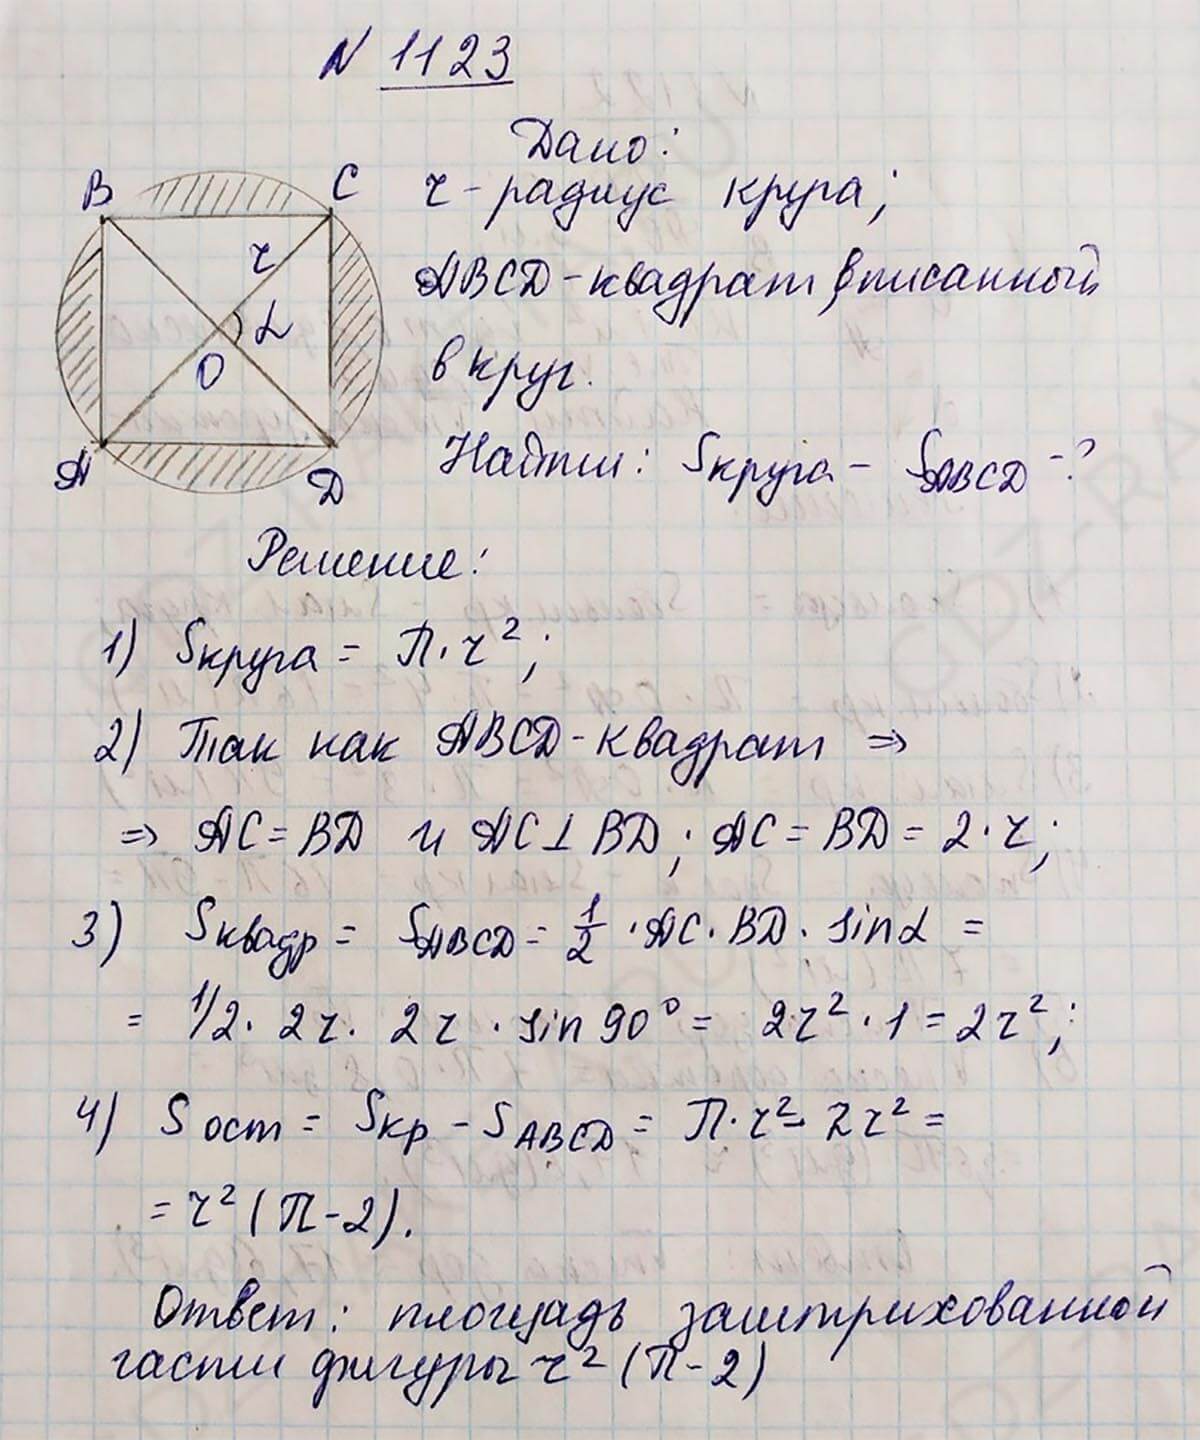 N 1123
Дано:
B
C
r - радиус круга;
r
ABCD - квадрат, вписанный
α
O
в круг.
A
D
Найти: Sкруга - SABCD - ?
Решение:
1) Sкруга = П · r²;
2) Так как ABCD - квадрат ⇒
⇒ AC = BD и AC ⊥ BD; AC = BD = 2 · r;
3) Sквадр = SABCD = 1/2 · AC · BD · sin α =
= 1/2 · 2r · 2r · sin 90° = 2r² · 1 = 2r²;
4) Sост = Sкр - SABCD = П · r² - 2r² =
= r² (П - 2).
Ответ: площадь заштрихованной
части фигуры r² (П - 2)